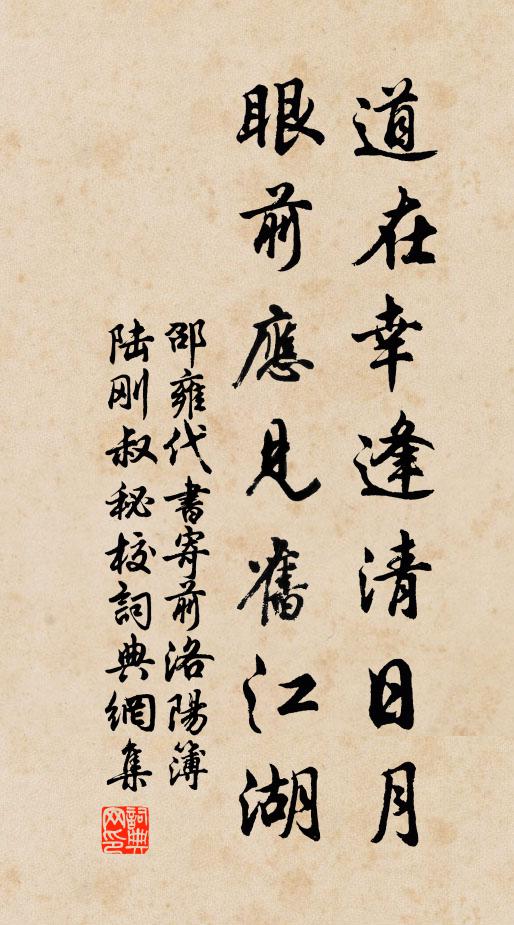 道在幸逢清日月
眼前應見舊江湖
邵雍代書寄前洛陽簿
陸刚叔秘校詞典網集
詞典网印